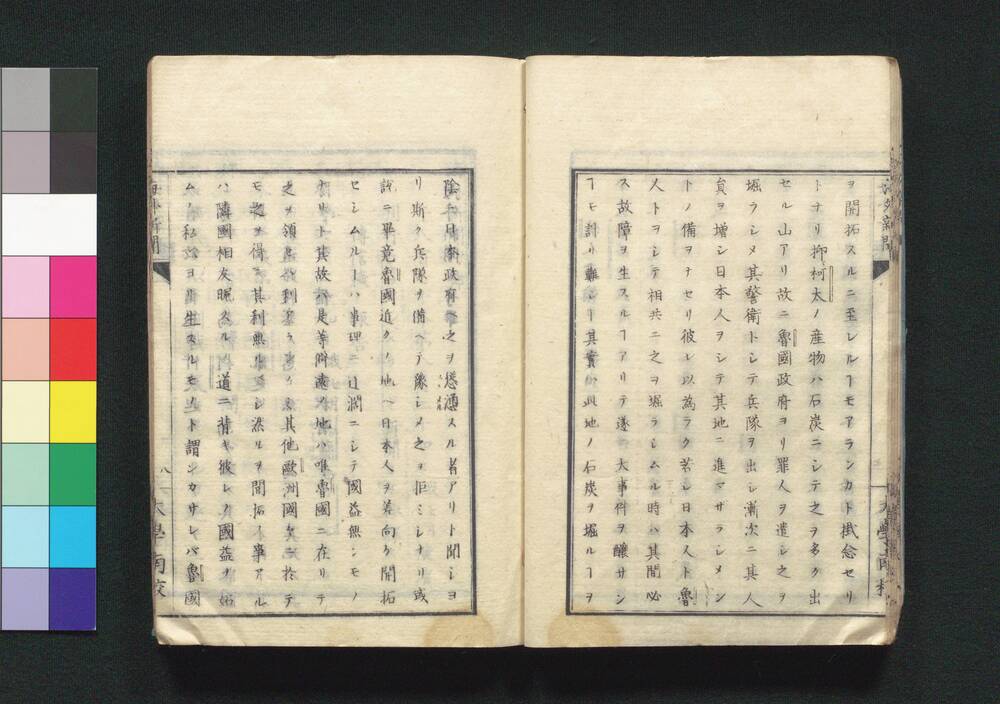 ヲ開拓スルニ至レルヿモアランカト掛念セリ
トナリ抑柯太ノ産物ハ石炭ニシテ之ヲ多ク出
セル山アリ故ニ魯國政府ヨリ罪人ヲ遣シ之ヲ
堀ラシメ其警衛トシテ兵隊ヲ出シ漸次ニ其人
員ヲ増シ日本人ヲシテ其地ニ進マサラシメン
トノ備ヲナセリ彼レ以為ラク若シ日本人ト魯
人トヲシテ相共ニ之ヲ堀ラシムル時ハ其間必
ス故障ヲ生スルヿアリテ遂ニ大事件ヲ釀サン
ヿモ計リ難シト其實ハ此地ノ石炭ヲ堀ルヿヲ
海外新聞
大學南校
陰ニ日本政府ニ之ヲ慫慂スル者アリト聞シヨ
リ斯ク兵隊ヲ備ヘテ豫シメ之ヲ拒ミシナリ或
説ニ畢竟魯國近クノ地ヘ日本人ヲ差向ケ開拓
セシムルハ事理ニ迂濶ニシテ國益無シモノ
ナリト其故ハ是等僻遠ノ地ハ唯魯國ニ在リテ
之ヲ領シ利アル而已其他歐洲國々ニ於テ
モ之ヲ得ニ其利無ルヘシ然ルヲ開拓ノ事アル
ハ隣國相友睍スルノ道ニ背キ彼レノ國益ヲ妬
ムノ私心ヨリ生スルモノト謂ンカサレバ魯國
海外新聞
八
大學南校